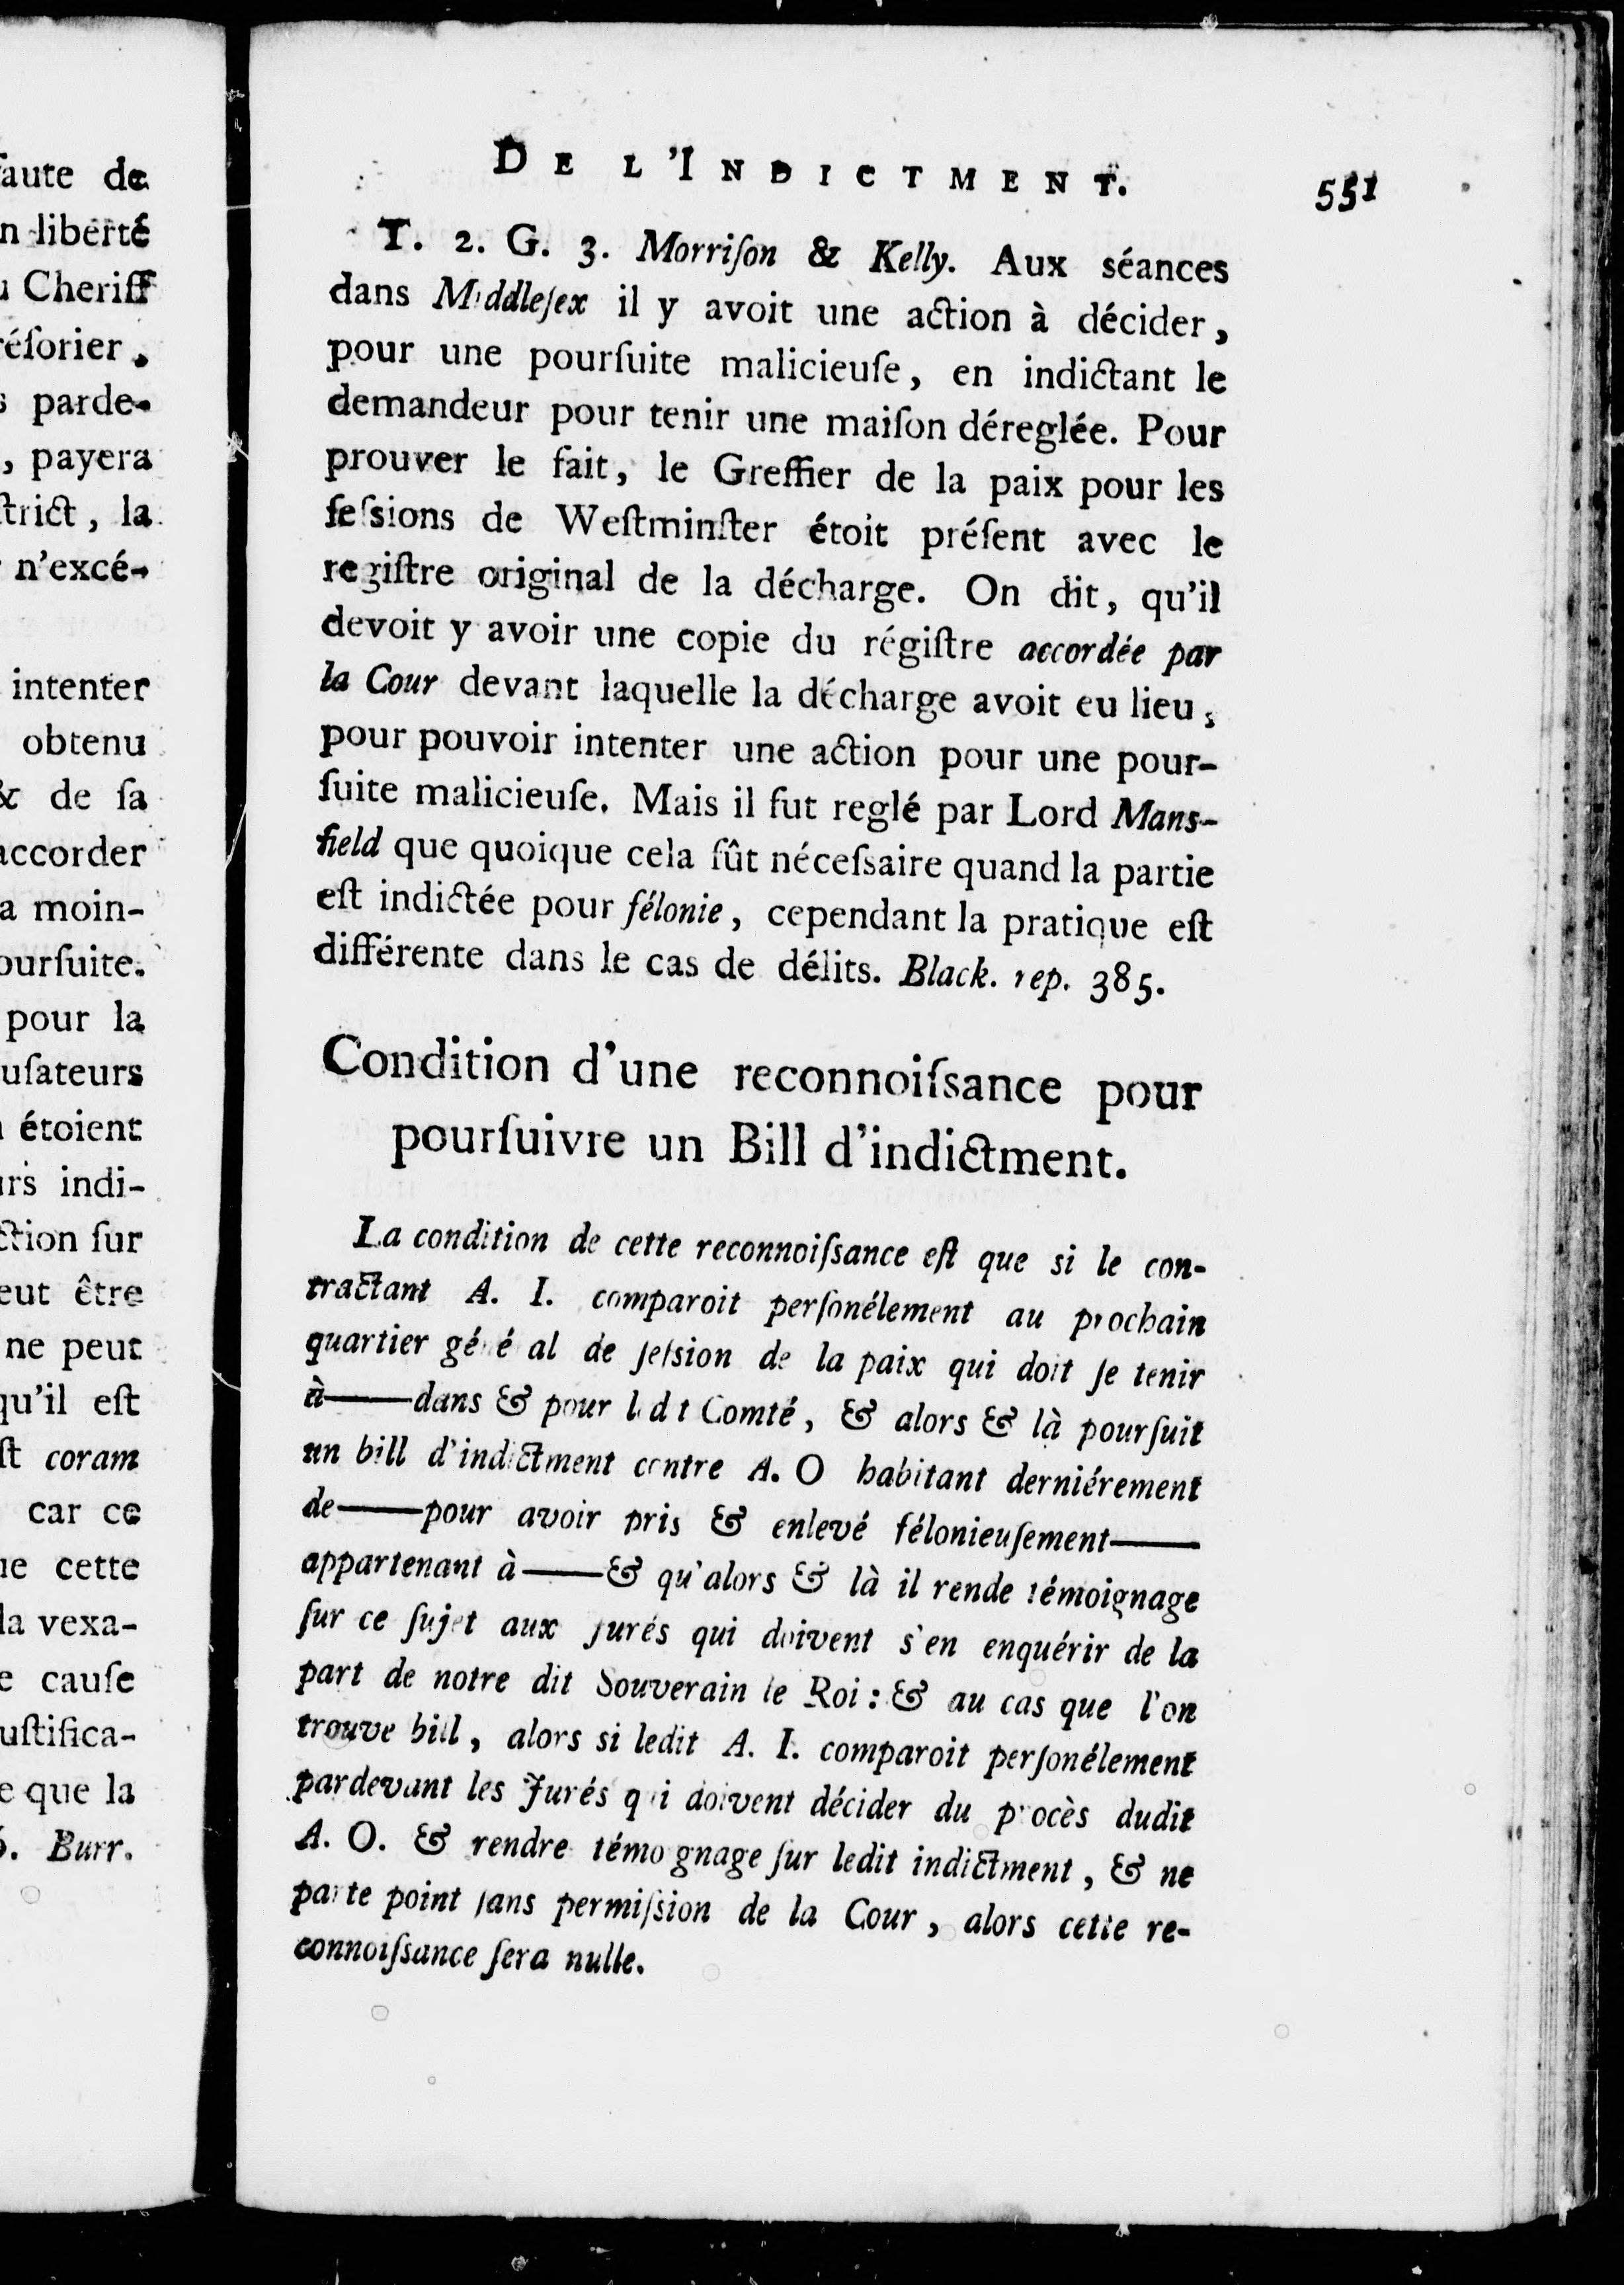 faute de
n liberté
u Cheriff
réſorier,
s parde-
, payera
ſtrict, la
n'excé-
intenter
obtenu
& de ſa
accorder
a moin-
ourſuite.
pour la
uſateurs
étoient
urs indi-
ction ſur
eut être
ne peut
qu'il eſt
ſt coram
car ce
ue cette
la vexa-
e cauſe
uſtifica-
e que la
6. Burr.
DE L'INDICTMENT. 551
T. 2. G. 3. Morriſon & Kelly. Aux séances
dans Middleſex il y avoit une action à décider,
pour une pourſuite malicieuſe, en indictant le
demandeur pour tenir une maiſon déreglée. Pour
prouver le fait, le Greffier de la paix pour les
ſeſsions de Weſtminſter étoit préſent avec le
regiſtre original de la décharge. On dit, qu'il
devoit y avoir une copie du régiſtre accordée par
la Cour devant laquelle la décharge avoit eu lieu,
pour pouvoir intenter une action pour une pour-
ſuite malicieuſe. Mais il fut reglé par Lord Mans-
field que quoique cela fût néceſsaire quand la partie
eſt indictée pour félonie, cependant la pratique eſt
différente dans le cas de délits. Black. rep. 385.
Condition d'une reconnoiſsance pour
pourſuivre un Bill d'indictment.
La condition de cette reconnoiſsance eſt que si le con-
tractant A. I. comparoit perſonélement au prochain
quartier général de ſeſsion de la paix qui doit ſe tenir
à——dans & pour ledit Comté, & alors & là pourſuit
un bill d'indictment contre A. O habitant derniérement
de——pour avoir pris & enlevé félonieuſement——
appartenant à——& qu'alors & là il rende témoignage
ſur ce ſujet aux jurés qui doivent s'en enquérir de la
part de notre dit Souverain le Roi : & au cas que l'on
trouve bill, alors si ledit A. I. comparoit perſonélement
pardevant les Jurés qui doivent décider du procès dudit
A. O. & rendre témoignage ſur ledit indictment, & ne
parte point ſans permiſsion de la Cour, alors cette re-
connoiſsance ſera nulle.